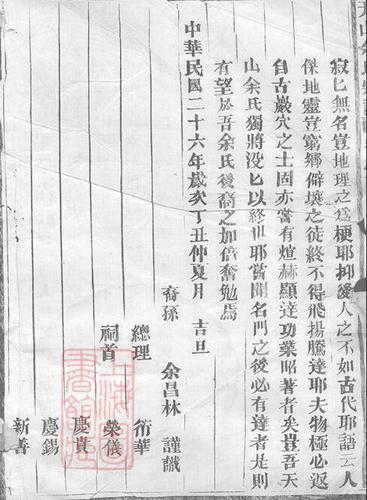 寂匕無名豈地理之爲梗耶抑後人之不如古代耶語云人
傑地靈豈窮鄉僻壤之徒終不得飛揚騰達耶夫物極必返
自古巖穴之士固亦嘗有煊赫顯達功業昭著者矣豈吾天
山余氏獨將没匕以終世耶嘗聞名門之後必有達者是則
有望於吾余氏後裔之加倍奮勉焉
中華民國二十六年歲次丁丑仲夏月 吉旦
裔孫 余昌林 謹識
總理 衍華
祠首 榮儀
慶貴
慶錫
新善